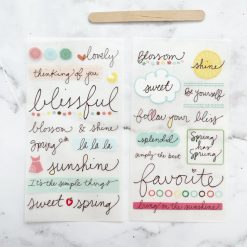 lovely
thinking of you
blissful
blossom & shine
Spring
la la la
sunshine
it's the simple things
sweet spring
blossom
shine
sweet
be yourself
follow your bliss
splendid
simply the best
Spring
has
sprung
favorite
bring on the sunshine